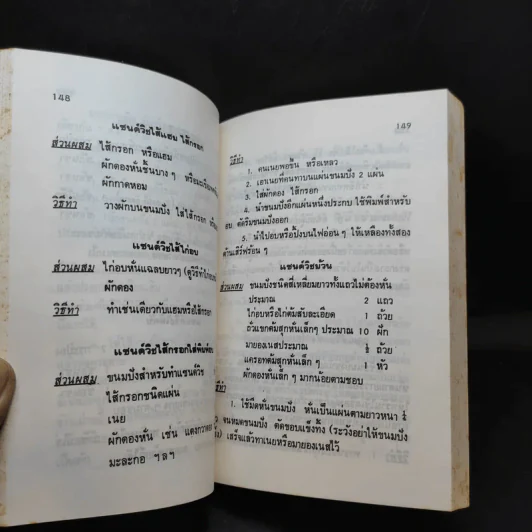 148
แซนด์วิชไส้แฮม ไส้กรอก
ส่วนผสม ไส้กรอก หรือแฮม
ผักดองหั่นชิ้นบางๆ
ผักกาดหอม
วิธีทำ วางผักบนขนมปัง ใส่ไส้กรอก
แซนด์วิชไส้ไก่อบ
ส่วนผสม ไก่อบหั่นแฉลบยาวๆ (ดูวิธีทำไก่อบ
ผักดอง
วิธีทำ ทำเช่นเดียวกับแฮมหรือไส้กรอก
แซนด์วิชไส้กรอกใส่พิมพ์อบ
ส่วนผสม ขนมปังสำหรับทำแซนด์วิช
ไส้กรอกชนิดแผ่น
เนย
ผักดองหั่น เช่น แตงกวาดอง
มะละกอ ฯลฯ
149
วิธีทำ
1. คนเนยพอข้น หรือเหลว
2. เอาเนยที่คนทาบนแผ่นขนมปัง 2 แผ่น
3. ใส่ผักดอง ไส้กรอก
4. นำขนมปังอีกแผ่นหนึ่งประกบ ใช้พิมพ์สำหรับ
อบ ตัดริมขนมปังออก
5. นำไปอบหรือปิ้งบนไฟอ่อนๆ ให้เหลืองทั้งสอง
ด้านเสิร์ฟร้อนๆ
แซนด์วิชม้วน
ส่วนผสม ขนมปังชนิดสี่เหลี่ยมยาวทั้งแถวไม่ต้องหั่น
ประมาณ 2 แถว
ไก่อบหรือไก่ต้มสับละเอียด 1 ถ้วย
ถั่วแขกต้มสุกหั่นเล็กๆ ประมาณ 10 ฝัก
มายองเนสประมาณ ½ ถ้วย
แครอทต้มสุกหั่นเล็กๆ 1 หัว
ผักดองหั่นเล็กๆ มากน้อยตามชอบ
วิธีทำ
1. ใช้มีดหั่นขนมปัง หั่นเป็นแผ่นตามยาวหนา
จนหมดขนมปัง ตัดขอบแข็งทิ้ง (ระวังอย่าให้ขนมปัง
เสร็จแล้วทาเนยหรือมายองเนสไว้